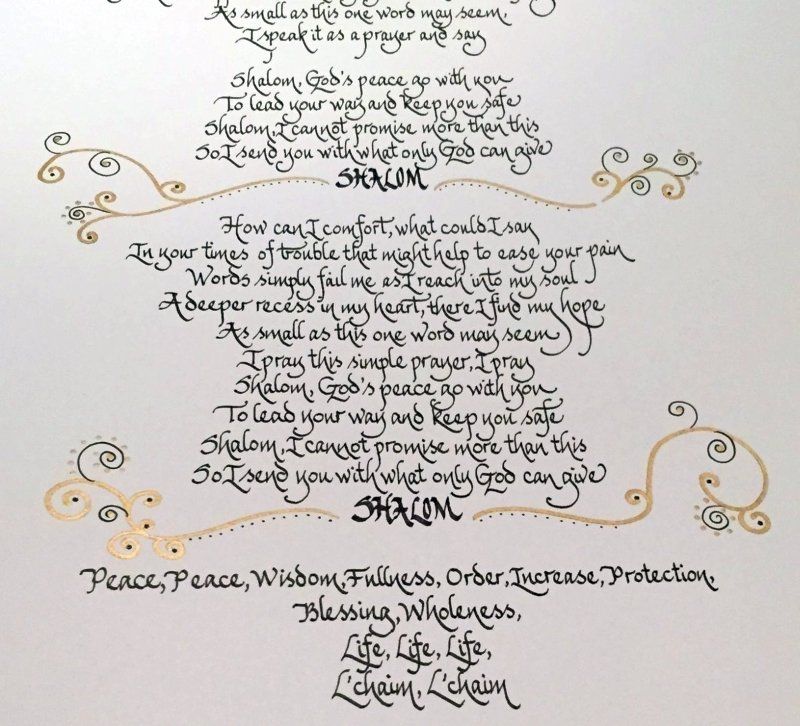 As small as this one word may seem,
I speak it as a prayer and say
Shalom, God's peace go with you
To lead your way and keep you safe
Shalom, I cannot promise more than this
So I send you with what only God can give
SHALOM
How can I comfort, what could I say
In your times of trouble that might help to ease your pain
Words simply fail me as I reach into my soul
A deeper recess in my heart, there I find my hope
As small as this one word may seem
I pray this simple prayer, I pray
Shalom, God's peace go with you
To lead your way and keep you safe
Shalom, I cannot promise more than this
So I send you with what only God can give
SHALOM
Peace, Peace, Wisdom, Fullness, Order, Increase, Protection,
Blessing, Wholeness,
Life, Life, Life,
L'chaim, L'chaim